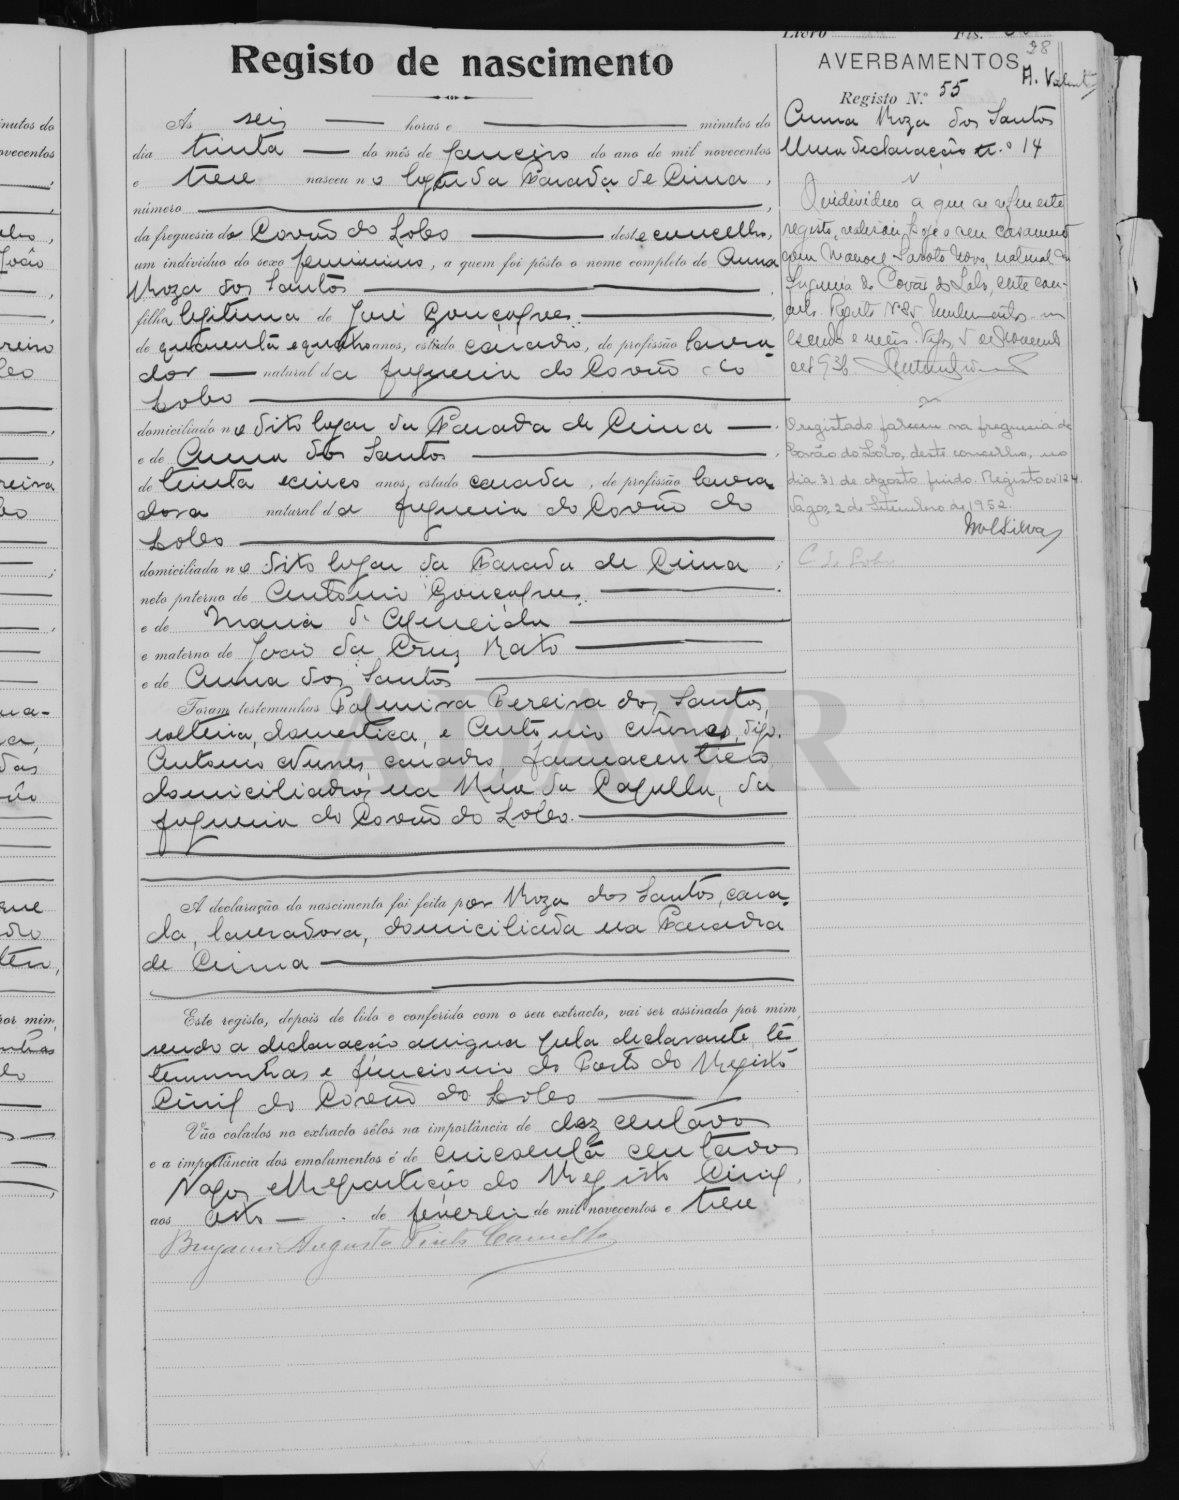 Livro Fls.
28
Registo de nascimento
AVERBAMENTOS
A. Valente
Registo N.º 55
Às seis horas e minutos do
dia trinta do mês de Janeiro do ano de mil novecentos
e treze nasceu no logar da Parada de Cima,
número
da freguesia do Covão do Lobo deste concelho,
um indivíduo do sexo feminino, a quem foi pôsto o nome completo de Anna
Roza dos Santos
filha legitima de José Gonçalves
de quarenta e quatro anos, estado casado, de profissão lavra-
dor natural da freguesia do Covão do
Lobo
domiciliado no dito logar da Parada de Cima
e de Anna dos Santos
de trinta e cinco anos, estado casada, de profissão lavra
dora natural da freguesia do Covão do
Lobo
domiciliada no dito logar da Parada de Cima;
neto paterno de Antonio Gonçalves
e de Maria d'Almeida
e materno de João da Cruz Rato
e de Anna dos Santos
Foram testemunhas Palmira Pereira dos Santos,
solteira, domestica, e Antonio Nunes, digo,
Antonio Nunes, casado, farmaceutico,
domiciliados na Rua da Capella, da
freguesia do Covão do Lobo.
A declaração do nascimento foi feita por Roza dos Santos, casa-
da, lavradora, domiciliada na Parada
de Cima
Este registo, depois de lido e conferido com o seu extracto, vai ser assinado por mim,
sendo a declaração assignada pela declarante, tes
temunhas e funcionario do Posto do Registo
Civil do Covão do Lobo
Vão colados no extracto sêlos na importância de dez centavos
e a importância dos emolumentos é de cincoenta centavos
Vagos, e Repartição do Registo Civil,
aos oito de fevereiro de mil novecentos e treze
Benjamim Augusto Pinto Camello
Anna Roza dos Santos
Uma declaração n.º 14
O individuo a que se refere este
registo, realizou hoje o seu casamento
com Manoel Novo, natural da
freguesia do Covão do Lobo, este con-
celho. Registo Nº 85. Emolumentos um
escudo e meio. Vagos, 5 de Fevereiro
de 1936.
O registado faleceu na freguesia de
Covão do Lobo, deste concelho, no
dia 31 de Agosto findo. Registo nº 124.
Vagos, 2 de Setembro de 1952.
C. do Lobo
ADAVR